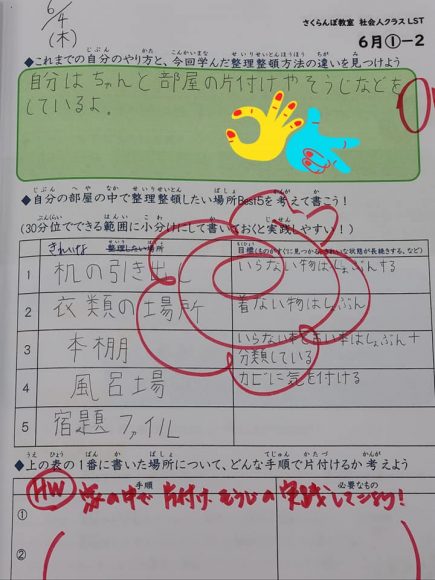 6/4
(木)
さくらんぼ教室 社会人クラス LST
6月①-2
◆これまでの自分のやり方と、今回学んだ整理整頓方法の違いを見つけよう
自分はちゃんと部屋の片付けやそうじなどを
しているよ。
◆自分の部屋の中で整理整頓したい場所Best5を考えて書こう!
(30分位でできる範囲に小分けにして書いておくと実践しやすい!)
きれいな
整理したい場所
1 机の引き出し いらない物はしょぶんする
2 衣類の場所 着ない物はしょぶん
3 本棚 いらない本と古い本はしょぶん+
分類している
4 風呂場 カビに気を付ける
5 宿題ファイル
◆上の表の1番に書いた場所について、どんな手順で片付けるか考えよう
手順 必要なもの
HW 家の中で片付け、そうじの実践してみよう!
①
②